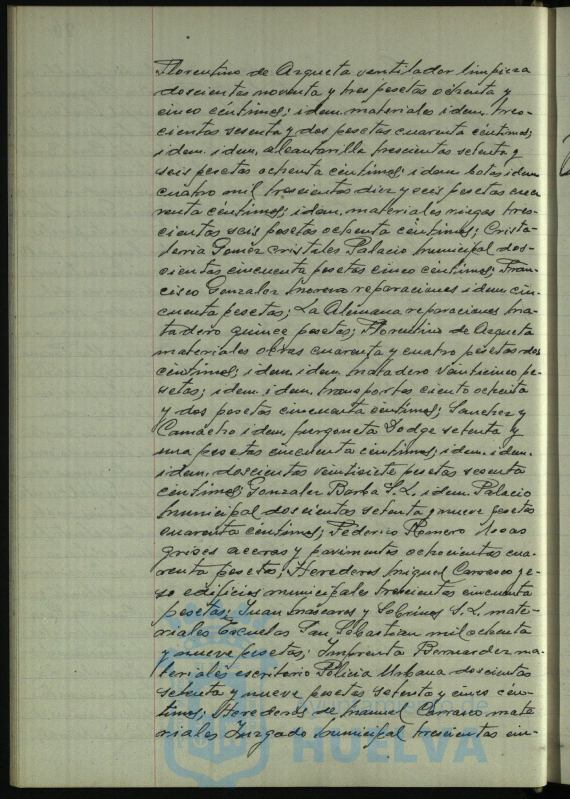 Florentino de Azqueta ventilador limpieza
doscientas noventa y tres pesetas ochenta y
cinco céntimos; idem. materiales idem. tres-
cientas sesenta y dos pesetas cuarenta céntimos;
idem. idem. alcantarilla trescientas setenta y
seis pesetas ochenta céntimos; idem botas idem
cuatro mil trescientas diez y seis pesetas cua
renta céntimos; idem. materiales riegos tres-
cientas seis pesetas ochenta céntimos; Crista-
leria Gomez cristales Palacio municipal dos-
cientas cincuenta pesetas cinco céntimos; Fran-
cisco Gonzalez Moreno reparaciones idem cin-
cuenta pesetas; La Alemana reparaciones Ma-
tadero quince pesetas; Florentino de Azqueta
materiales obras cuarenta y cuatro pesetas dos
céntimos; idem. idem. matadero veinticinco pe-
setas; idem. idem. transportes ciento ochenta
y dos pesetas cincuenta céntimos; Sanchez y
Camacho idem. furgoneta Dodge setenta y
una pesetas cincuenta céntimos; idem. idem.
idem. doscientas veintisiete pesetas sesenta
céntimos; Gonzalez Barba S.L. idem. Palacio
Municipal doscientas setenta y nueve pesetas
cuarenta céntimos; Federico Romero losas
grises aceras y pavimentos ochocientas cua-
renta pesetas; Herederos Miguel Carrasco ye-
so edificios municipales trescientas cincuenta
pesetas; Juan Mascaros y Sobrinos S.L. mate-
riales Escuelas San Sebastian mil ochenta
y nueve pesetas; Imprenta Bernardez ma-
teriales escritorio Policia Urbana doscientas
setenta y nueve pesetas setenta y cinco cén-
timos; Herederos de Manuel Carrasco mate
riales Juzgado Municipal trescientas cin-
HUELVA